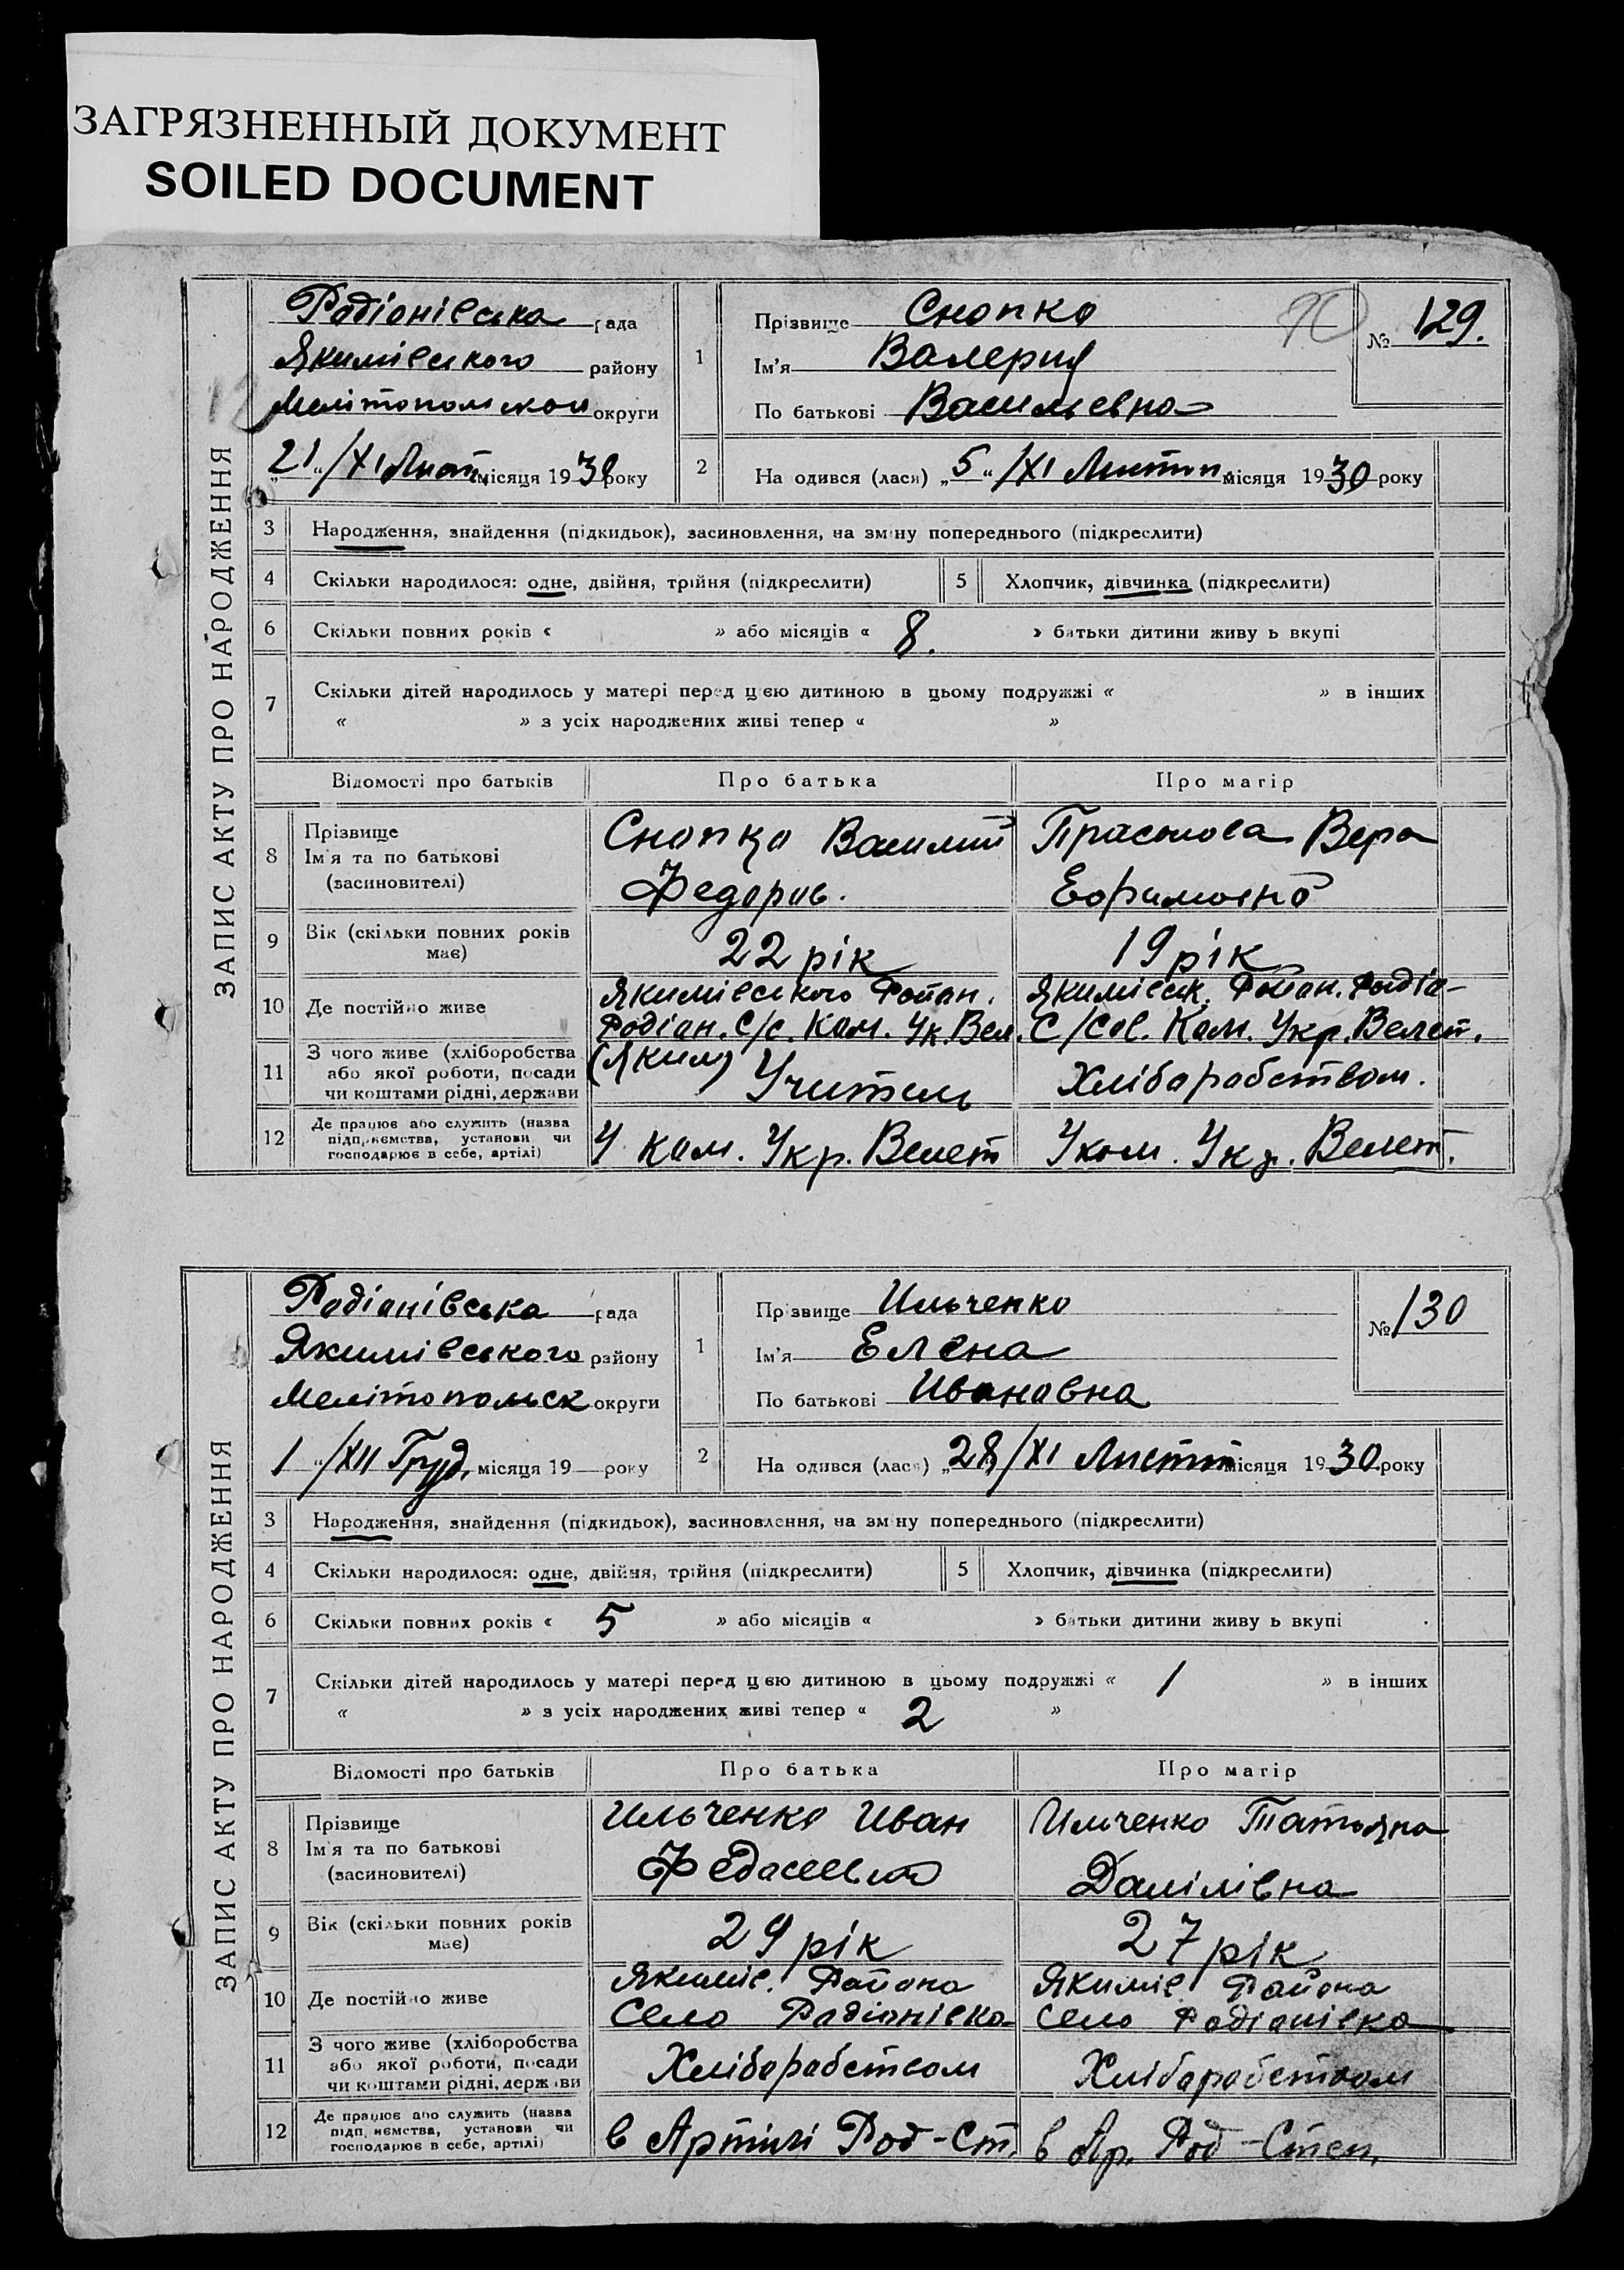 ЗАГРЯЗНЕННЫЙ ДОКУМЕНТ
SOILED DOCUMENT
ЗАПИС АКТУ ПРО НАРОДЖЕННЯ
Радіонівська рада
Якимівського району
округи
21 "/XI місяця 1930 року
1
Прізвище Снопко
Ім'я Валерия
По батькові Васильевна
90
№ 129.
2
На одився (лася) „5" /XI Листоп. місяця 1930 року
3 Народження, знайдення (підкидьок), засиновлення, на зміну попереднього (підкреслити)
4 Скільки народилося: одне, двійня, трійня (підкреслити) 5 Хлопчик, дівчинка (підкреслити)
6 Скільки повних років « » або місяців « 8. » батьки дитини живуть вкупі
7 Скільки дітей народилось у матері перед цією дитиною в цьому подружжі « » в інших
« » з усіх народжених живі тепер « »
Відомості про батьків Про батька Про матір
8 Прізвище
Ім'я та по батькові
(засиновителі)
Снопко Василий
Федоров.
Прасолова Вера
Ефимовна
9 Вік (скільки повних років
має)
22 рік
19 рік
10 Де постійно живе
Якимівського Район.
Радіан. С/с. Ком. Ук. Вел.
Якимівск. Район. Радіа-
С/Сов. Ком. Укр. Велет.
11 З чого живе (хліборобства
або якої роботи, посади
чи коштами рідні, держави
(Яким)
Учитель
Хліборобством.
12 Де працює або служить (назва
підприємства, установи чи
господарює в себе, артілі)
У ком. Укр. Велет
У ком. Укр. Велет.
ЗАПИС АКТУ ПРО НАРОДЖЕННЯ
Радіанівська рада
Якимівського району
Мелітопольск округи
1 "/XII Груд. місяця 19 року
1
Прізвище Ильченко
Ім'я Елена
По батькові Ивановна
№ 130
2
На одився (лася) „28/XI Листоп місяця 1930 року
3 Народження, знайдення (підкидьок), засиновлення, на зміну попереднього (підкреслити)
4 Скільки народилося: одне, двійня, трійня (підкреслити) 5 Хлопчик, дівчинка (підкреслити)
6 Скільки повних років « 5 » або місяців « » батьки дитини живуть вкупі
7 Скільки дітей народилось у матері перед цією дитиною в цьому подружжі « 1 » в інших
« » з усіх народжених живі тепер « 2 »
Відомості про батьків Про батька Про матір
8 Прізвище
Ім'я та по батькові
(засиновителі)
Ильченко Иван
Ильченко Татьяна
Данілівна
9 Вік (скільки повних років
має)
29 рік
27 рік
10 Де постійно живе
Якимів. Района
Село Радіонівка
Якимів. Района
Село Радіанівка
11 З чого живе (хліборобства
або якої роботи, посади
чи коштами рідні, держави
Хліборобством
Хліборобством
12 Де працює або служить (назва
підприємства, установи чи
господарює в себе, артілі)
в Артілі Род-Ст.
в Ар. Род-Степ.